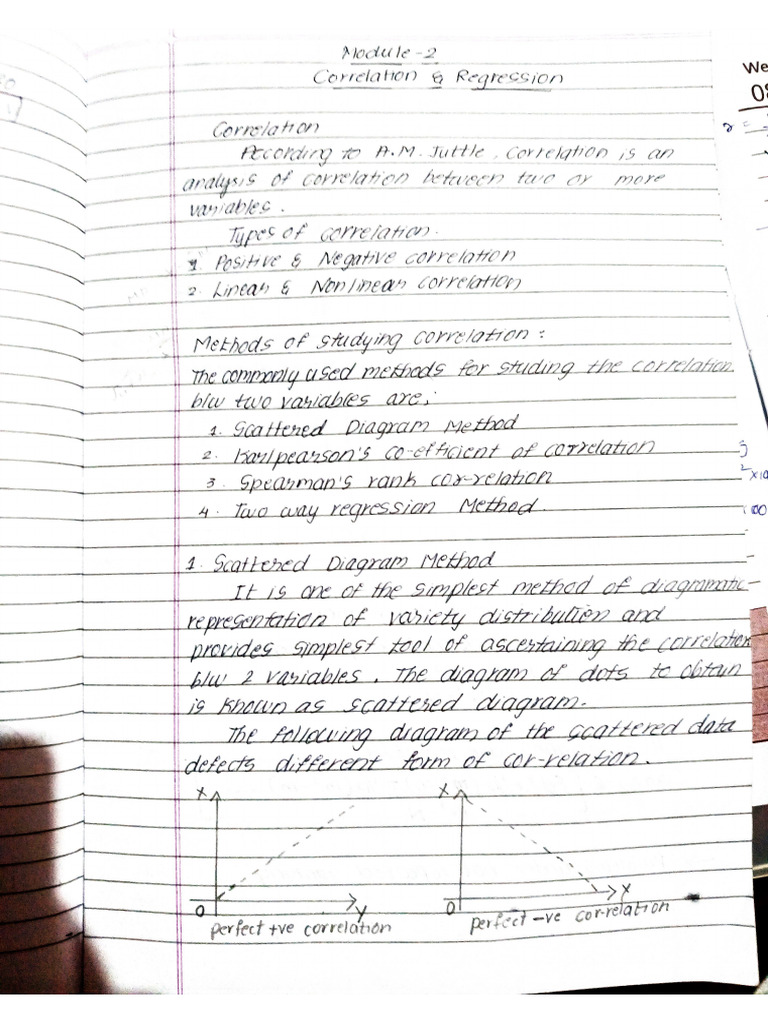 Module-2
Correlation & Regression
We
08
r =
Correlation
According to A.M. Tuttle, Correlation is an
analysis of correlation between two or more
variables.
Types of correlation.
1. Positive & Negative correlation
2. Linear & Nonlinear correlation
Methods of studying correlation:
The commonly used methods for studing the correlation
b/w two variables are;
1. Scattered Diagram Method
2. Karlpearson's co-efficient of correlation
3. Spearman's rank cor-relation
4. Two way regression Method.
1. Scattered Diagram Method
It is one of the simplest method of diagramatic
representation of variety distribution and
provides simplest tool of ascertaining the correlation
b/w 2 variables. The diagram of dots to obtain
is known as scattered diagram.
The following diagram of the scattered data
defects different form of cor-relation.
X X
0 Y 0 X
perfect +ve correlation perfect -ve cor-relation